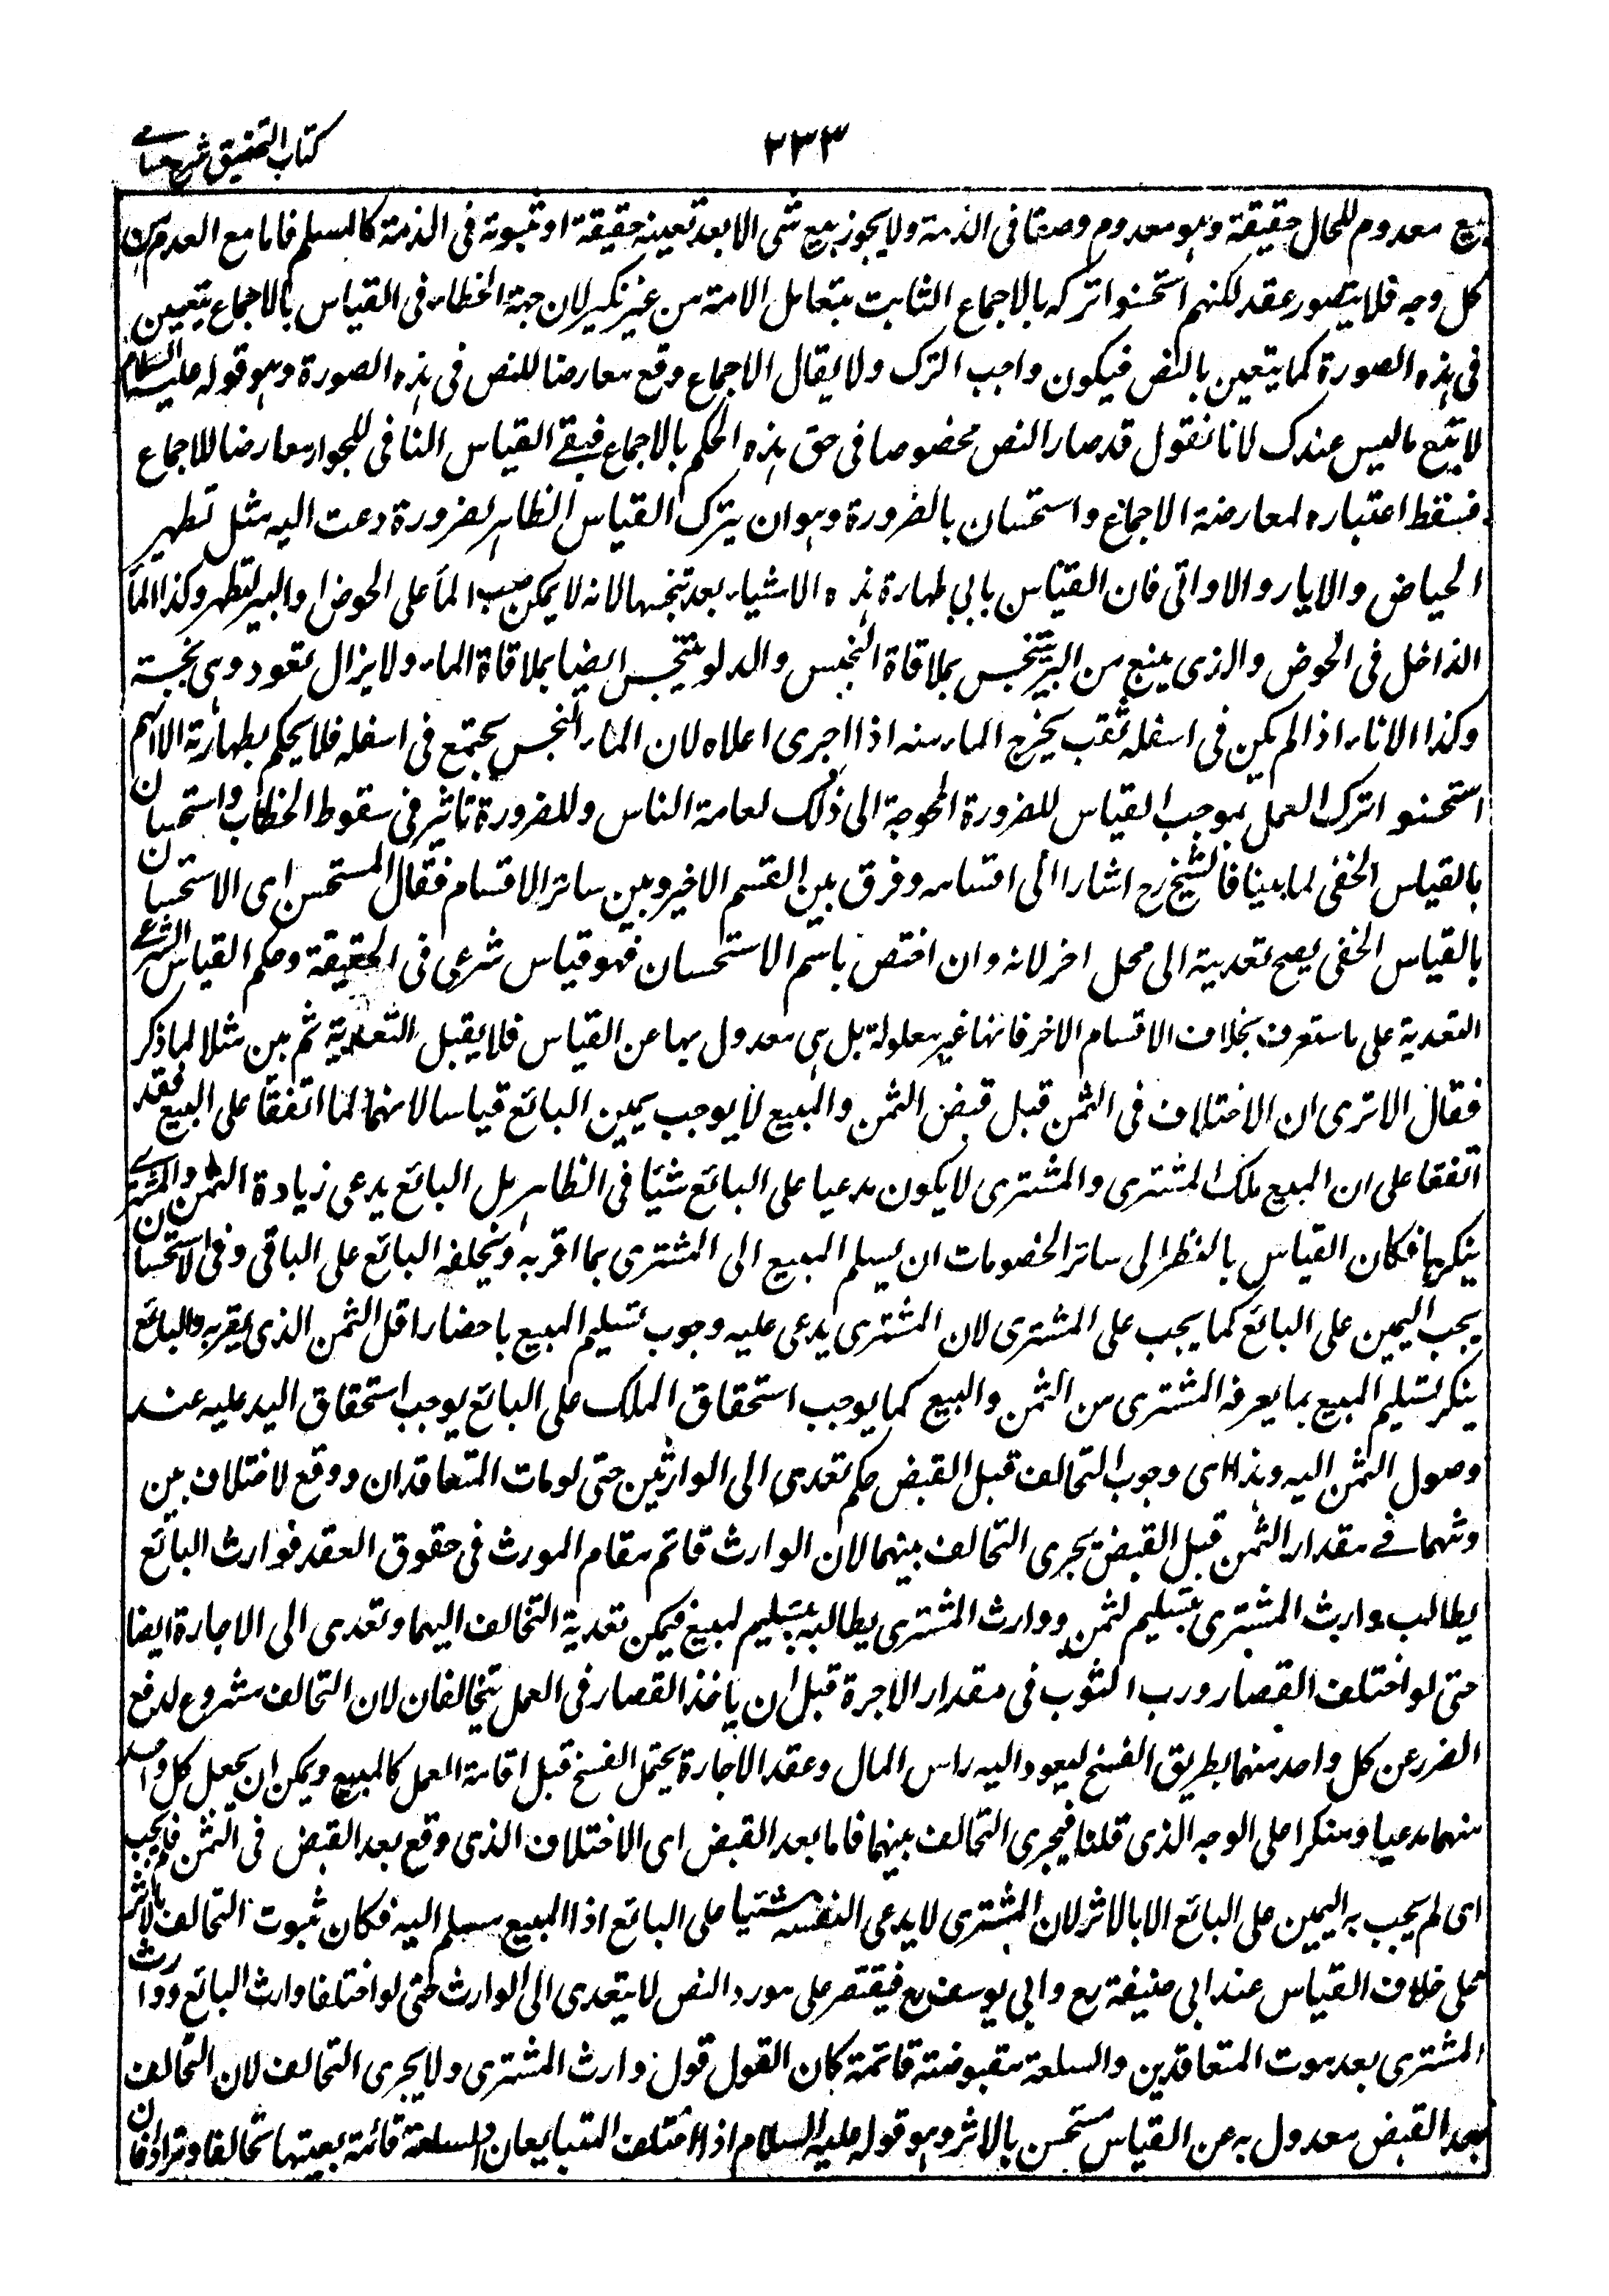 كتاب التحقيق شرح حسامي
٢٣٣
بيع معدوم للحال حقيقة وهو معدوم وصفا فى الذمة ولا يجوز بيع شى الا بعد تعينه حقيقة او ثبوته فى الذمة كالسلم فاما مع العدم من
كل وجه فلا يتصور عقد لكنهم استحسنوا تركه بالاجماع الثابت بتعامل الامة من غير نكير لان جهة الخطاء فى القياس بالاجماع يتعين
فى هذه الصورة كما يتعين بالنص فيكون واجب الترك ولا يقال الاجماع وقع معارضا للنص فى هذه الصورة وهو قوله عليه السلام
لا تبع ما ليس عندك لانا نقول قد صار النص مخصوصا فى حق هذه الحكم بالاجماع فبقے القياس النافى للجواز معارضا للاجماع
فسقط اعتباره لمعارضة الاجماع واستحسان بالضرورة وهو ان يترك القياس الظاهر لضرورة دعت اليه مثل تطهير
الحياض والابار والاوانى فان القياس يابى طهارة هذه الاشياء بعد تنجسها لانه لا يمكن صب الماء على الحوض او البير لتطهر وكذا الماء
الداخل فى الحوض والذى ينبع من البير يتنجس بملاقاة النجس والدلو يتنجس ايضا بملاقاة الماء ولا يزال تعود وهى نجسة
وكذا الاناء اذا لم يكن فى اسفله ثقب يخرج الماء منه اذا اجرى اعلاه لان الماء النجس يجتمع فى اسفله فلا يحكم بطهارته الا انهم
استحسنوا ترك العمل بموجب القياس للضرورة المحوجة الى ذلك لعامة الناس وللضرورة تاثير فى سقوط الخطاب واستحسان
بالقياس الخفى لما بينا فالشيخ رح اشار الى اقسامه وفرق بين القسم الاخير وبين سائر الاقسام فقال المستحسن اى الاستحسان
بالقياس الخفى يصح تعديته الى محل اخر لانه وان اختص باسم الاستحسان فهو قياس شرعى فى الحقيقة وحكم القياس الشرعے
التعدية على ما ستعرف بخلاف الاقسام الاخر فانها غير معلولة بل هى معدول بها عن القياس فلا يقبل التعدية ثم بين مثلا لما ذكر
فقال الا ترى ان الاختلاف فى الثمن قبل قبض الثمن والمبيع لا يوجب يمين البائع قياسا لانهما لما اتفقا على البيع فقد
اتفقا على ان المبيع ملك المشترى والمشترى لا يكون مدعيا على البائع شيئا فى الظاهر بل البائع يدعى زيادة الثمن والمشترے
ينكرها فكان القياس بالنظر الى سائر الخصومات ان يسلم المبيع الى المشترى بما اقر به ويحلفه البائع على الباقى وفى الاستحسان
يجب اليمين على البائع كما يجب على المشترى لان المشترى يدعى عليه وجوب تسليم المبيع باحضار اقل الثمن الذى يقر به والبائع
ينكر تسليم المبيع بما يعرفه المشترى من الثمن والبيع كما يوجب استحقاق الملك على البائع يوجب استحقاق اليد عليه عند
وصول الثمن اليه وهذا اى وجوب التحالف قبل القبض حكم تعدى الى الوارثين حتى لو مات المتعاقدان ووقع لاختلاف بين
وثهما فے مقدار الثمن قبل القبض يجرى التحالف بينهما لان الوارث قائم مقام المورث فى حقوق العقد فوارث البائع
يطالب وارث المشترى بتسليم لثمن ووارث المشترى يطالبه بتسليم لمبيع فيمكن تعدية التحالف اليهما وتعدى الى الاجارة ايضا
حتى لو اختلف القصار ورب الثوب فى مقدار الاجرة قبل ان ياخذ القصار فى العمل يتحالفان لان التحالف مشروع لدفع
الضرر عن كل واحد منهما بطريق الفسخ ليعود اليه راس المال وعقد الاجارة يحتمل الفسخ قبل اقامة العمل كالمبيع ويمكن ان يجعل كل واحد
منهما مدعيا ومنكرا على الوجه الذى قلنا فيجرى التحالف بينهما فاما بعد القبض اى الاختلاف الذى وقع بعد القبض فى الثمن فلم يجب
اى لم يجب به اليمين على البائع الا بالاثر لان المشترى لا يدعى النفسه شيئا على البائع اذا المبيع مسلم اليه فكان ثبوت التحالف بالاثر
على خلاف القياس عند ابى حنيفة رح وابى يوسف رح فيقتصر على مورد النص لا يتعدى الى الوارث حتى لو اختلفا وارث البائع ووارث
المشترى بعد موت المتعاقدين والسلعة مقبوضته قائمة كان القول قول وارث المشترى ولا يجرى التحالف لان التحالف
بعد القبض معدول به عن القياس مستحسن بالاثر وهو قوله عليه السلام اذا اختلف المتبايعان والسلعة قائمة بعينها تحالفا وترادا فان